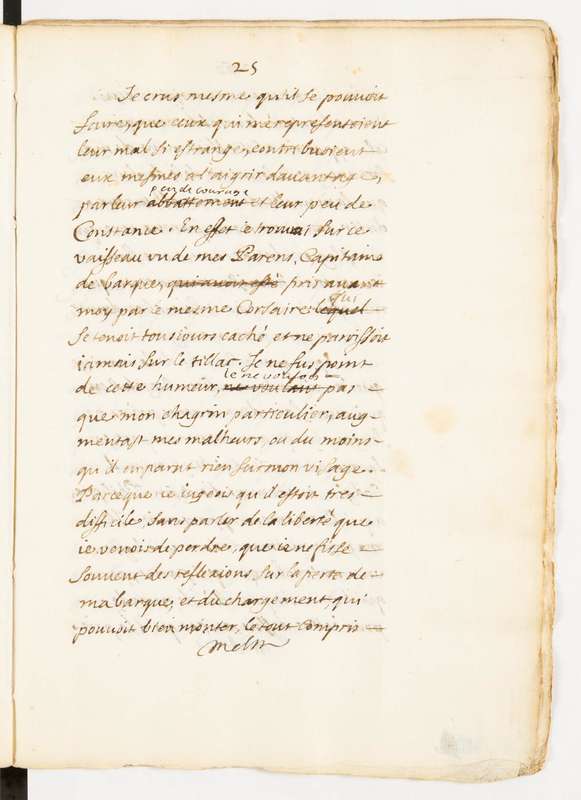 25
Je crus mesme qu'il se pouvoit
faire, que ceux qui me representoient
leur mal si estrange, contribuoient
eux mesmes a l'aigrir davantage,
peu de courage
par leur abbattement et leur peu de
Constance. En effet ie trouvai sur ce
vaisseau un de mes Parens, Capitaine
de barque, qui avoit esté pris avant
qui
moy par le mesme Corsaire: lequel
se tenoit tousiours caché et ne paroissoit
iamais sur le tillac. Je ne fus point
Ie ne voulois
de cette humeur, ne voulant pas
que mon chagrin particulier, aug-
mentast mes malheurs, ou du moins
qu'il en parut rien sur mon visage.
Parceque ie iugeois qu'il estoit tres
difficile, sans parler de la liberté que
ie venois de perdre, que ie ne fisse
souvent des reflexions sur la perte de
ma barque, et du chargement qui
pouvoit bien monter, le tout compris